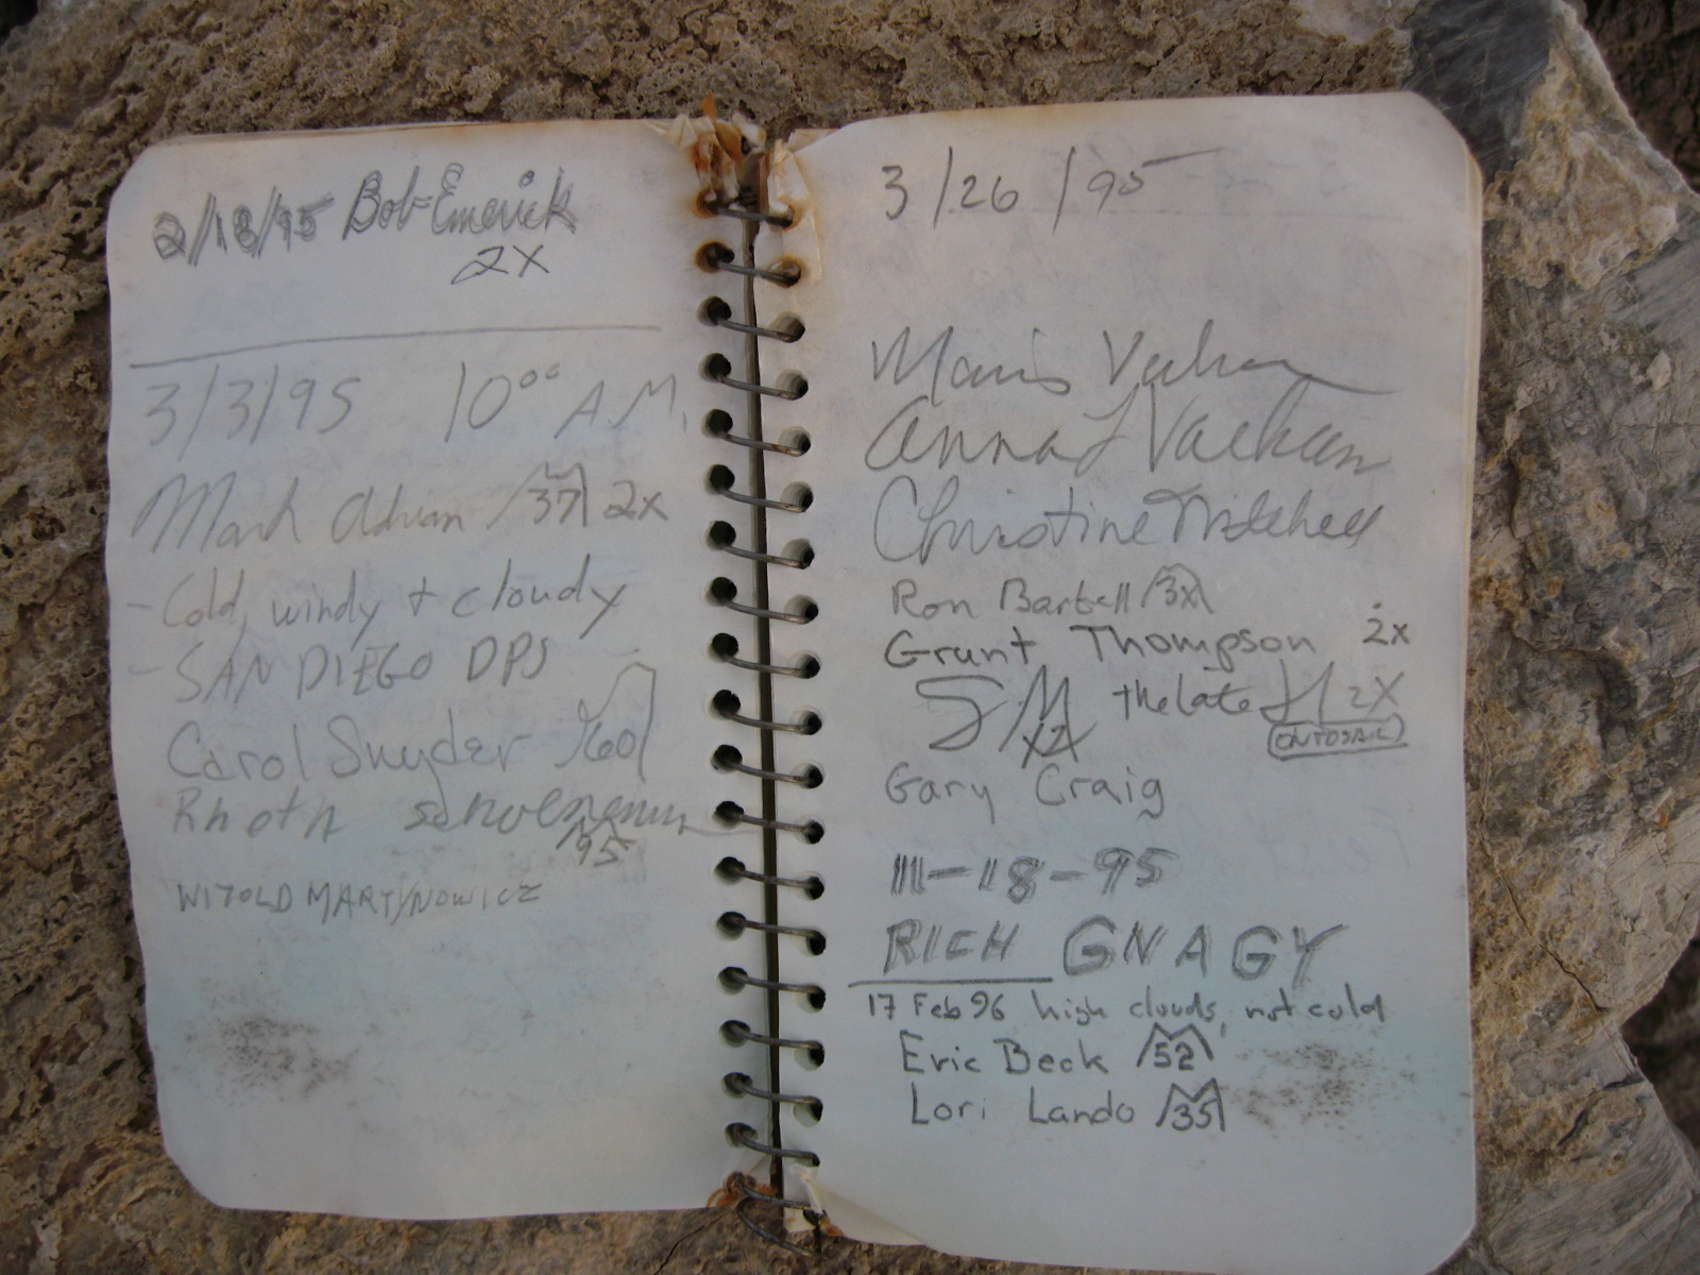 2/18/95 Bob Emerick
2X
3/3/95 10⁰⁰ A.M.
Mark Adrian 37 2x
- Cold, windy + cloudy
- SAN DIEGO DPS
Carol Snyder 60
95
WITOLD MARTYNOWICZ
3/26/95
Maris
Anna L
Christine Mitchell
Ron Bartell 3x
Grant Thompson 2x
the late 2X
Gary Craig
11-18-95
RICH GNAGY
17 Feb 96 high clouds, not cold
Eric Beck 52
Lori Lando 35